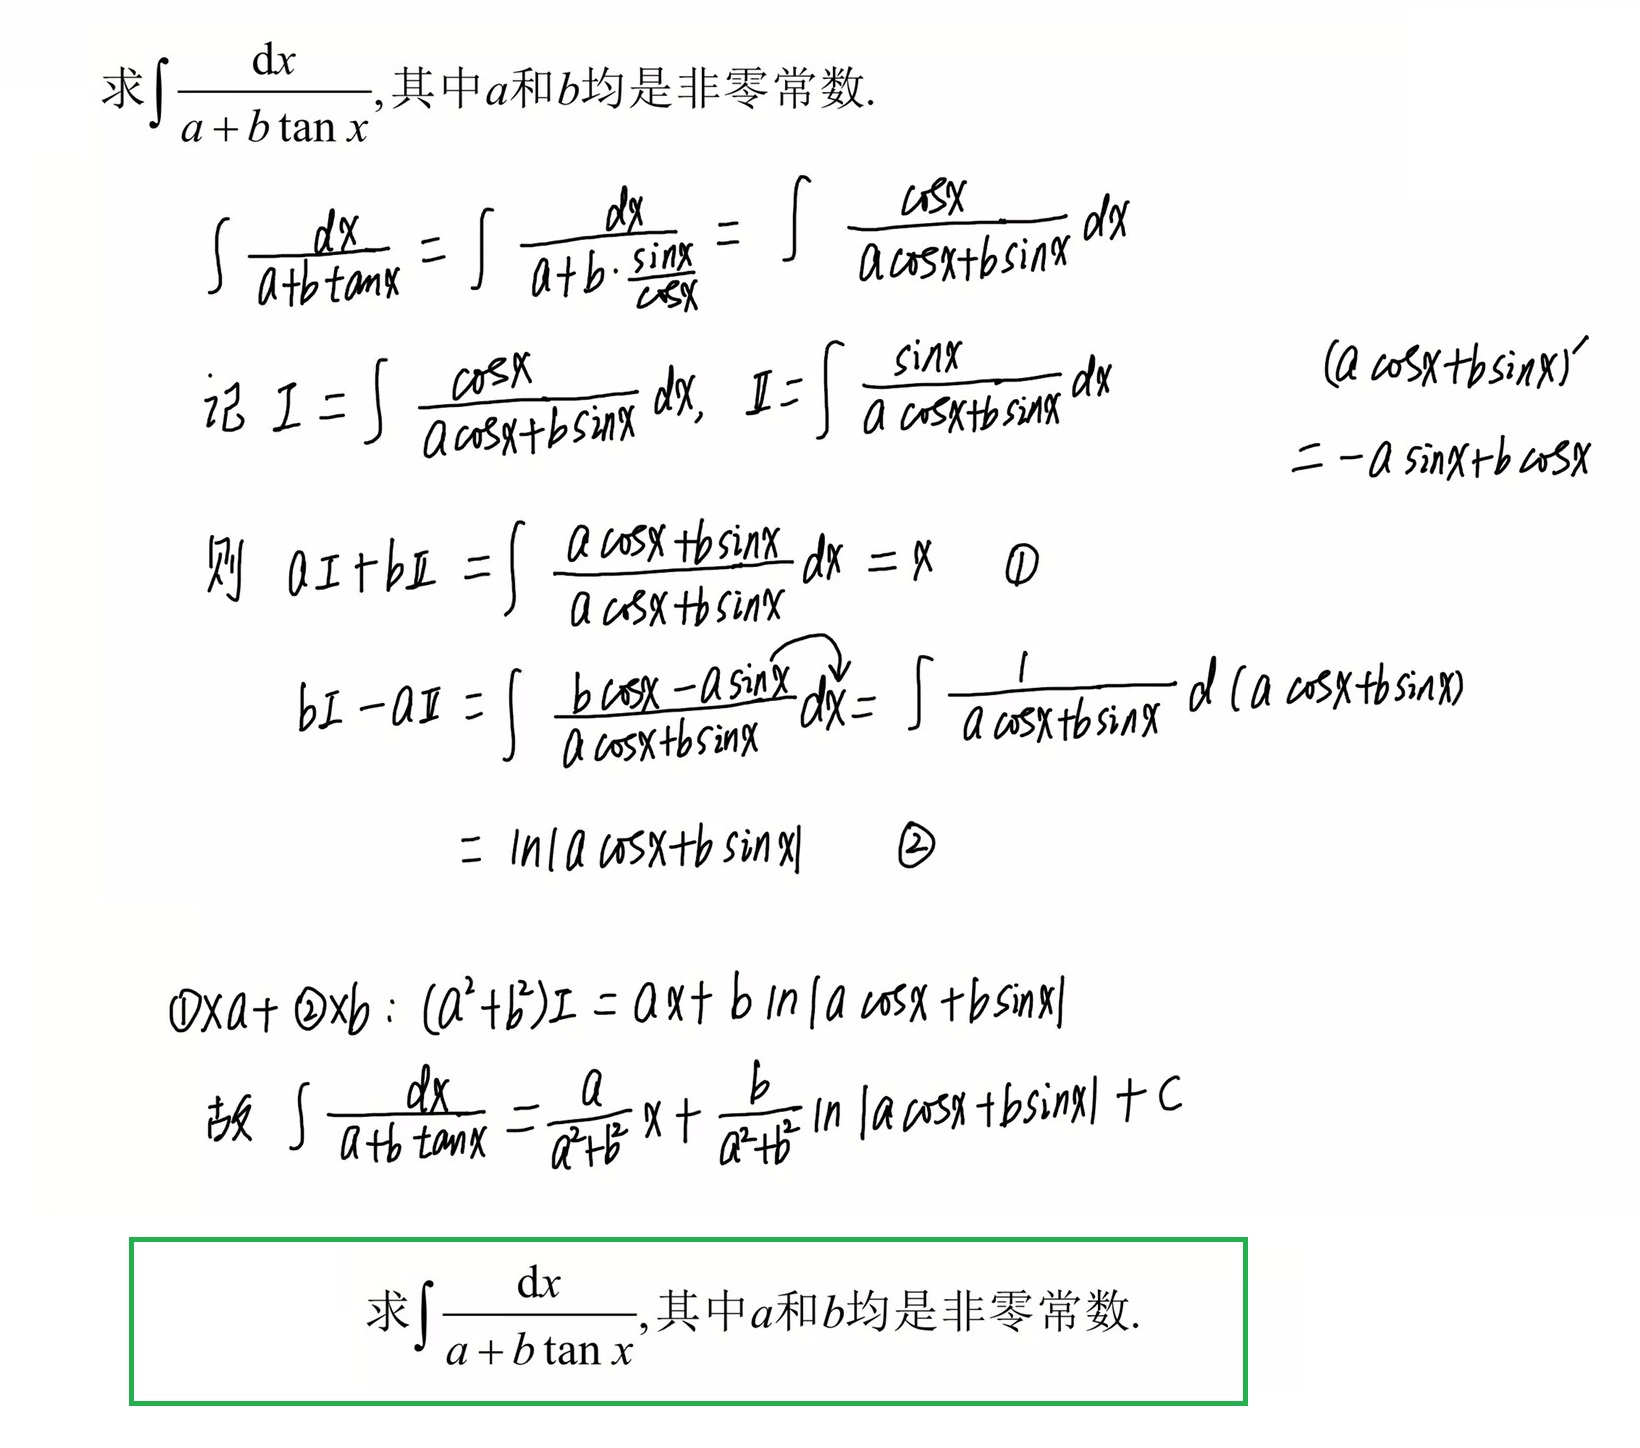 求∫ dx/(a + b tan x), 其中a和b均是非零常数.
∫ dx/(a+b tanx) = ∫ dx/(a+b·sinx/cosx) = ∫ cosx/(a cosx+b sinx) dx
记 I = ∫ cosx/(a cosx+b sinx) dx, II = ∫ sinx/(a cosx+b sinx) dx
(a cosx+b sinx)′
= -a sinx+b cosx
则 aI+bII = ∫ (a cosx+b sinx)/(a cosx+b sinx) dx = x ①
bI-aII = ∫ (b cosx-a sinx)/(a cosx+b sinx) dx = ∫ 1/(a cosx+b sinx) d(a cosx+b sinx)
= ln|a cosx+b sinx| ②
①×a+②×b: (a²+b²)I = ax+b ln|a cosx+b sinx|
故 ∫ dx/(a+b tanx) = a/(a²+b²) x + b/(a²+b²) ln|a cosx+b sinx|+C
求∫ dx/(a + b tan x), 其中a和b均是非零常数.